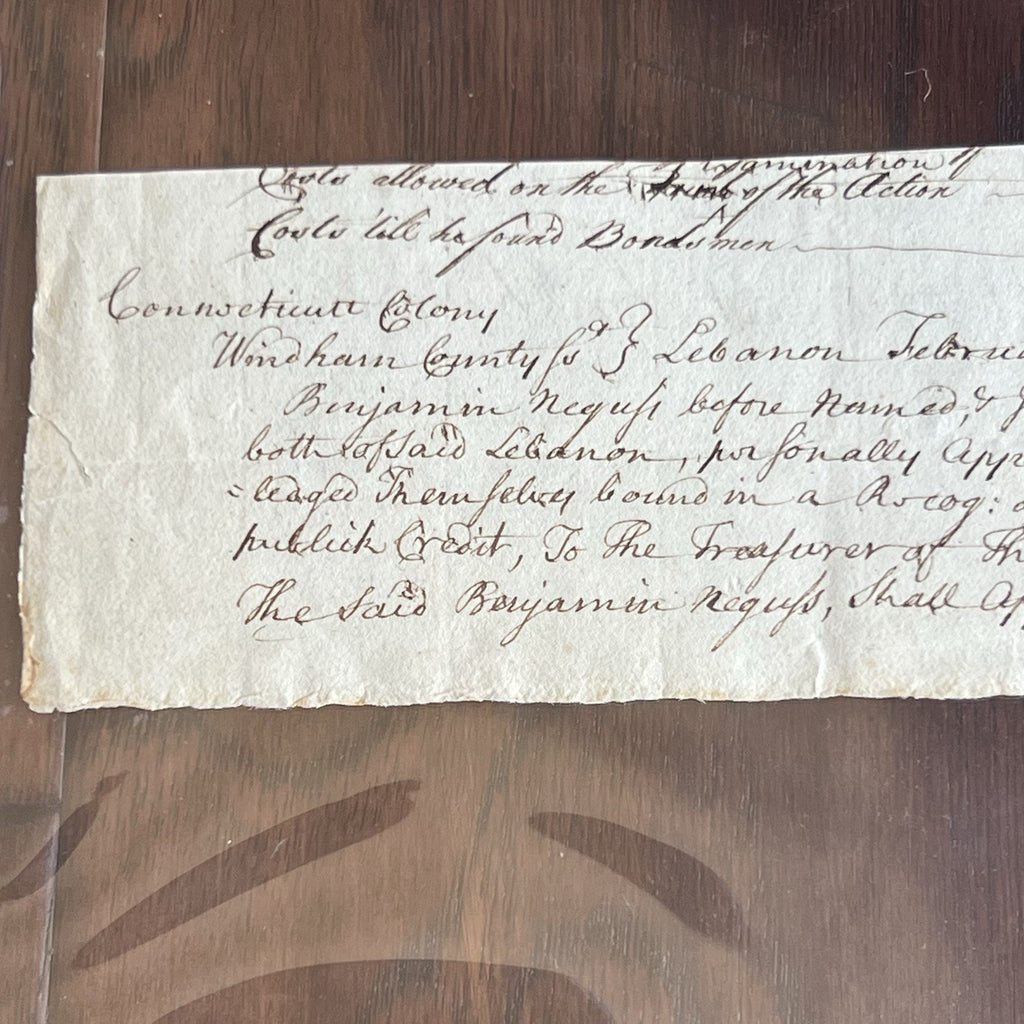 Examination of
Costs allowed on the of the Action
Costs till he found Bondsmen
Connecticutt Colony
Windham County ss } Lebanon Februa
Benjamin Neguss before Named, &
both of Said Lebanon, personally App
=ledged Themselves bound in a Recog:
publick Credit, To The Treasurer of Th
The Said Benjamin Neguss, Shall Ap